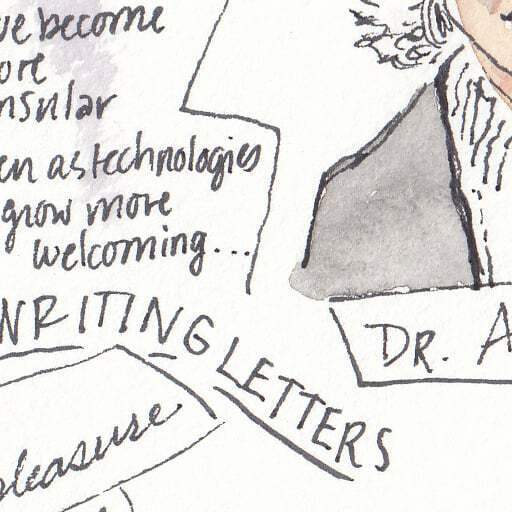 become
insular
as technologies
grow more
welcoming...
WRITING LETTERS
DR. A
pleasure